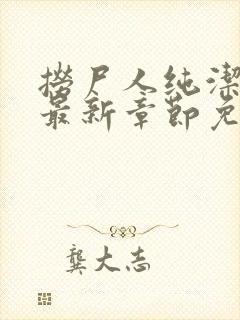 撈尸人纯潔
最新章節免
龔大志